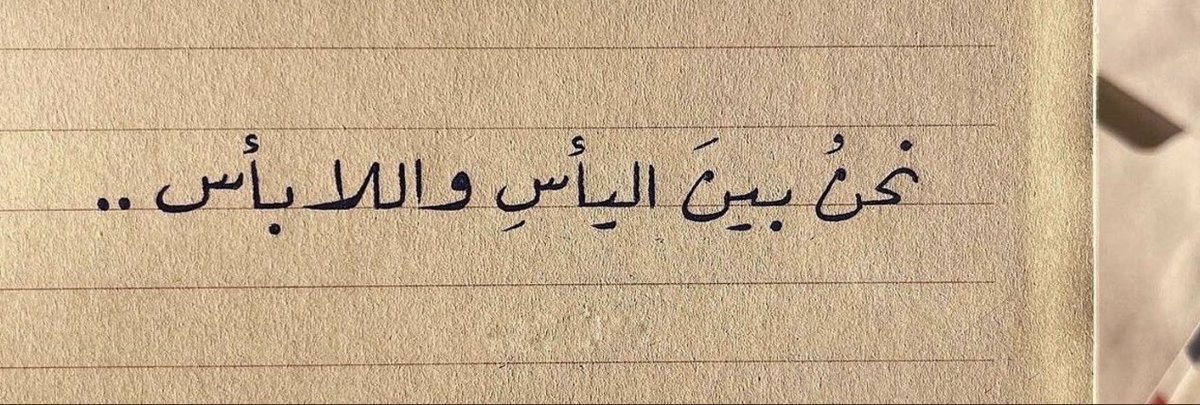 نحنُ بينَ اليأسِ واللا بأس ..